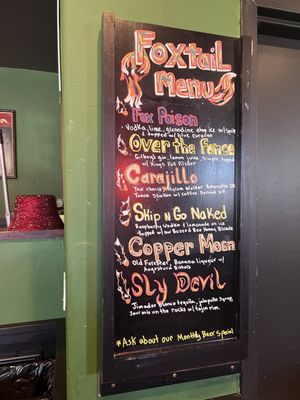 Foxtail
Menu
Fox Poison
Vodka, lime, grenadine
topped w/ blue curacao
Over the Fence
Gilbey's gin, lemon juice, simple topped
w/ Kings Fox Pilsner
Carajillo
Your choice
Served up
Skip n Go Naked
Raspberry Vodka & lemonade on ice
topped w/ our Buzzed Bee Honey Blonde
Copper Moon
Old Forester, Banana liqueur w/
Angostura Bitters
Sly Devil
Jimador Blanco tequila, jalapeño syrup,
Sour mix on the rocks w/ tajin rim.
*Ask about our Monthly Beer Special